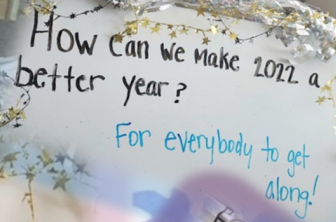 How can we make 2022 a
better year?
For everybody to get
along!